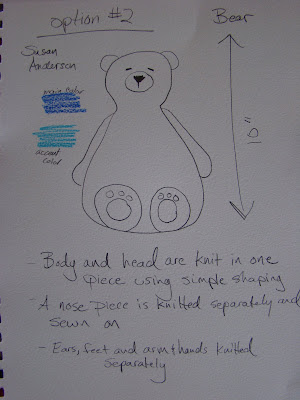 option #2
Bear
Susan
Anderson
main color
accent
color
10"
- Body and head are knit in one
piece using simple shaping
- A nose piece is knitted separately and
sewn on
- Ears, feet and arm/hands knitted
separately